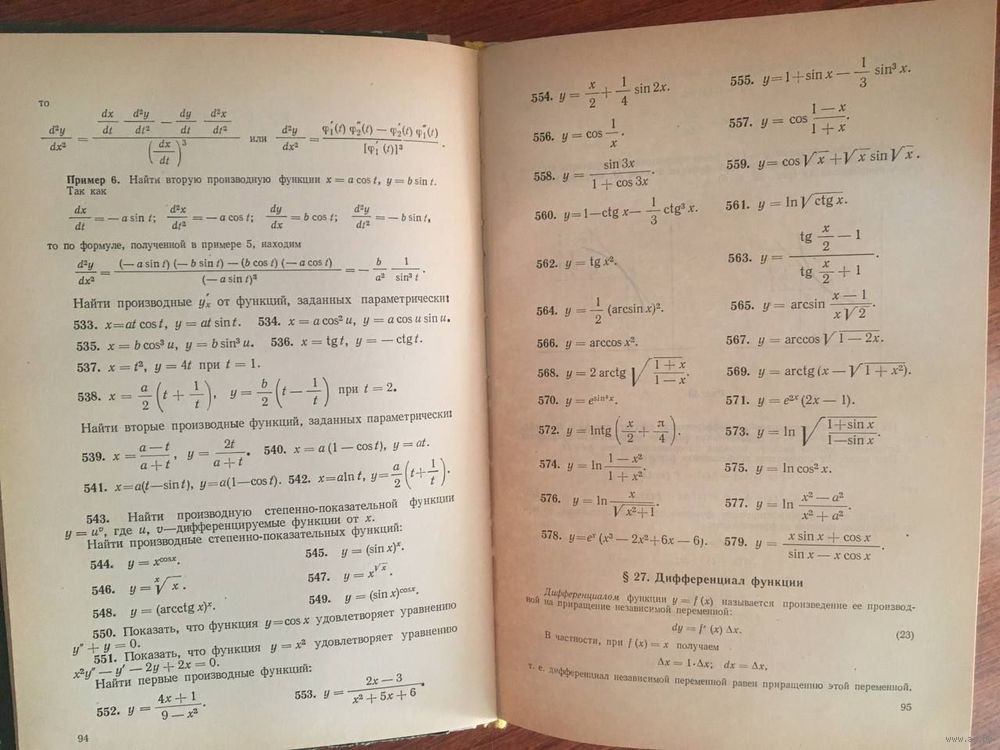 то
d²y/dx² = (dx/dt d²y/dt² — dy/dt d²x/dt²)/(dx/dt)³ или d²y/dx² = (φ₁′(t) φ₂″(t) — φ₂′(t) φ₁″(t))/[φ₁′(t)]³.
Пример 6. Найти вторую производную функции x = a cos t, y = b sin t.
Так как
dx/dt = — a sin t; d²x/dt² = — a cos t; dy/dx = b cos t; d²y/dt² = — b sin t,
то по формуле, полученной в примере 5, находим
d²y/dx² = ((— a sin t) (— b sin t) — (b cos t) (— a cos t))/(— a sin t)³ = — b/a² 1/sin³ t.
Найти производные y′ₓ от функций, заданных параметрически:
533. x=at cos t, y = at sin t. 534. x = a cos² u, y = a cos u sin u.
535. x = b cos³ u, y = b sin³ u. 536. x = tg t, y = — ctg t.
537. x = t², y = 4t при t = 1.
538. x = a/2 (t + 1/t), y = b/2 (t — 1/t) при t = 2.
Найти вторые производные функций, заданных параметрически:
539. x = (a — t)/(a + t), y = 2t/(a + t). 540. x = a (1 — cos t), y = at.
541. x=a(t—sin t), y=a(1—cos t). 542. x=a ln t, y= a/2 (t + 1/t).
543. Найти производную степенно-показательной функции
y = uᵛ, где u, v—дифференцируемые функции от x.
Найти производные степенно-показательных функций:
544. y = x^(cos x). 545. y = (sin x)ˣ.
546. y = ˣ√x. 547. y = x^(√x).
548. y = (arcctg x)ˣ. 549. y = (sin x)^(cos x).
550. Показать, что функция y=cos x удовлетворяет уравнению
y″ + y = 0.
551. Показать, что функция y = x² удовлетворяет уравнению
x²y″ — y′ — 2y + 2x = 0.
Найти первые производные функций:
552. y = (4x + 1)/(9 — x²). 553. y = (2x — 3)/(x² + 5x + 6).
94
554. y = x/2 + 1/4 sin 2x. 555. y=1+sin x — 1/3 sin³ x.
556. y = cos 1/x. 557. y = cos (1 — x)/(1 + x).
558. y = sin 3x/(1 + cos 3x). 559. y = cos √x + √x sin √x.
560. y=1—ctg x— 1/3 ctg³ x. 561. y = ln √(ctg x).
562. y = tg x². 563. y = (tg x/2 — 1)/(tg x/2 + 1).
564. y = 1/2 (arcsin x)². 565. y = arcsin (x — 1)/(x√2).
566. y = arccos x². 567. y = arccos √(1 — 2x).
568. y = 2 arctg √((1 + x)/(1 — x)). 569. y = arctg (x — √(1 + x²)).
570. y = e^(sin² x). 571. y = e²ˣ (2x — 1).
572. y = lntg (x/2 + π/4). 573. y = ln √((1+sin x)/(1—sin x)).
574. y = ln (1 — x²)/(1 + x²). 575. y = ln cos² x.
576. y = ln x/√(x²+1). 577. y = ln (x² — a²)/(x² + a²).
578. y=eˣ (x³ — 2x²+6x — 6). 579. y = (x sin x + cos x)/(sin x — x cos x).
§ 27. Дифференциал функции
Дифференциалом функции y = f (x) называется произведение ее производ-
ной на приращение независимой переменной:
dy = f′ (x) Δx. (23)
В частности, при f (x) = x получаем
Δx = 1·Δx; dx = Δx,
т. е. дифференциал независимой переменной равен приращению этой переменной.
95